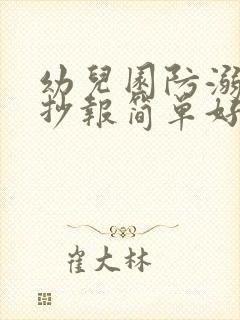 幼兒園防溺
抄報简單好
崔大林